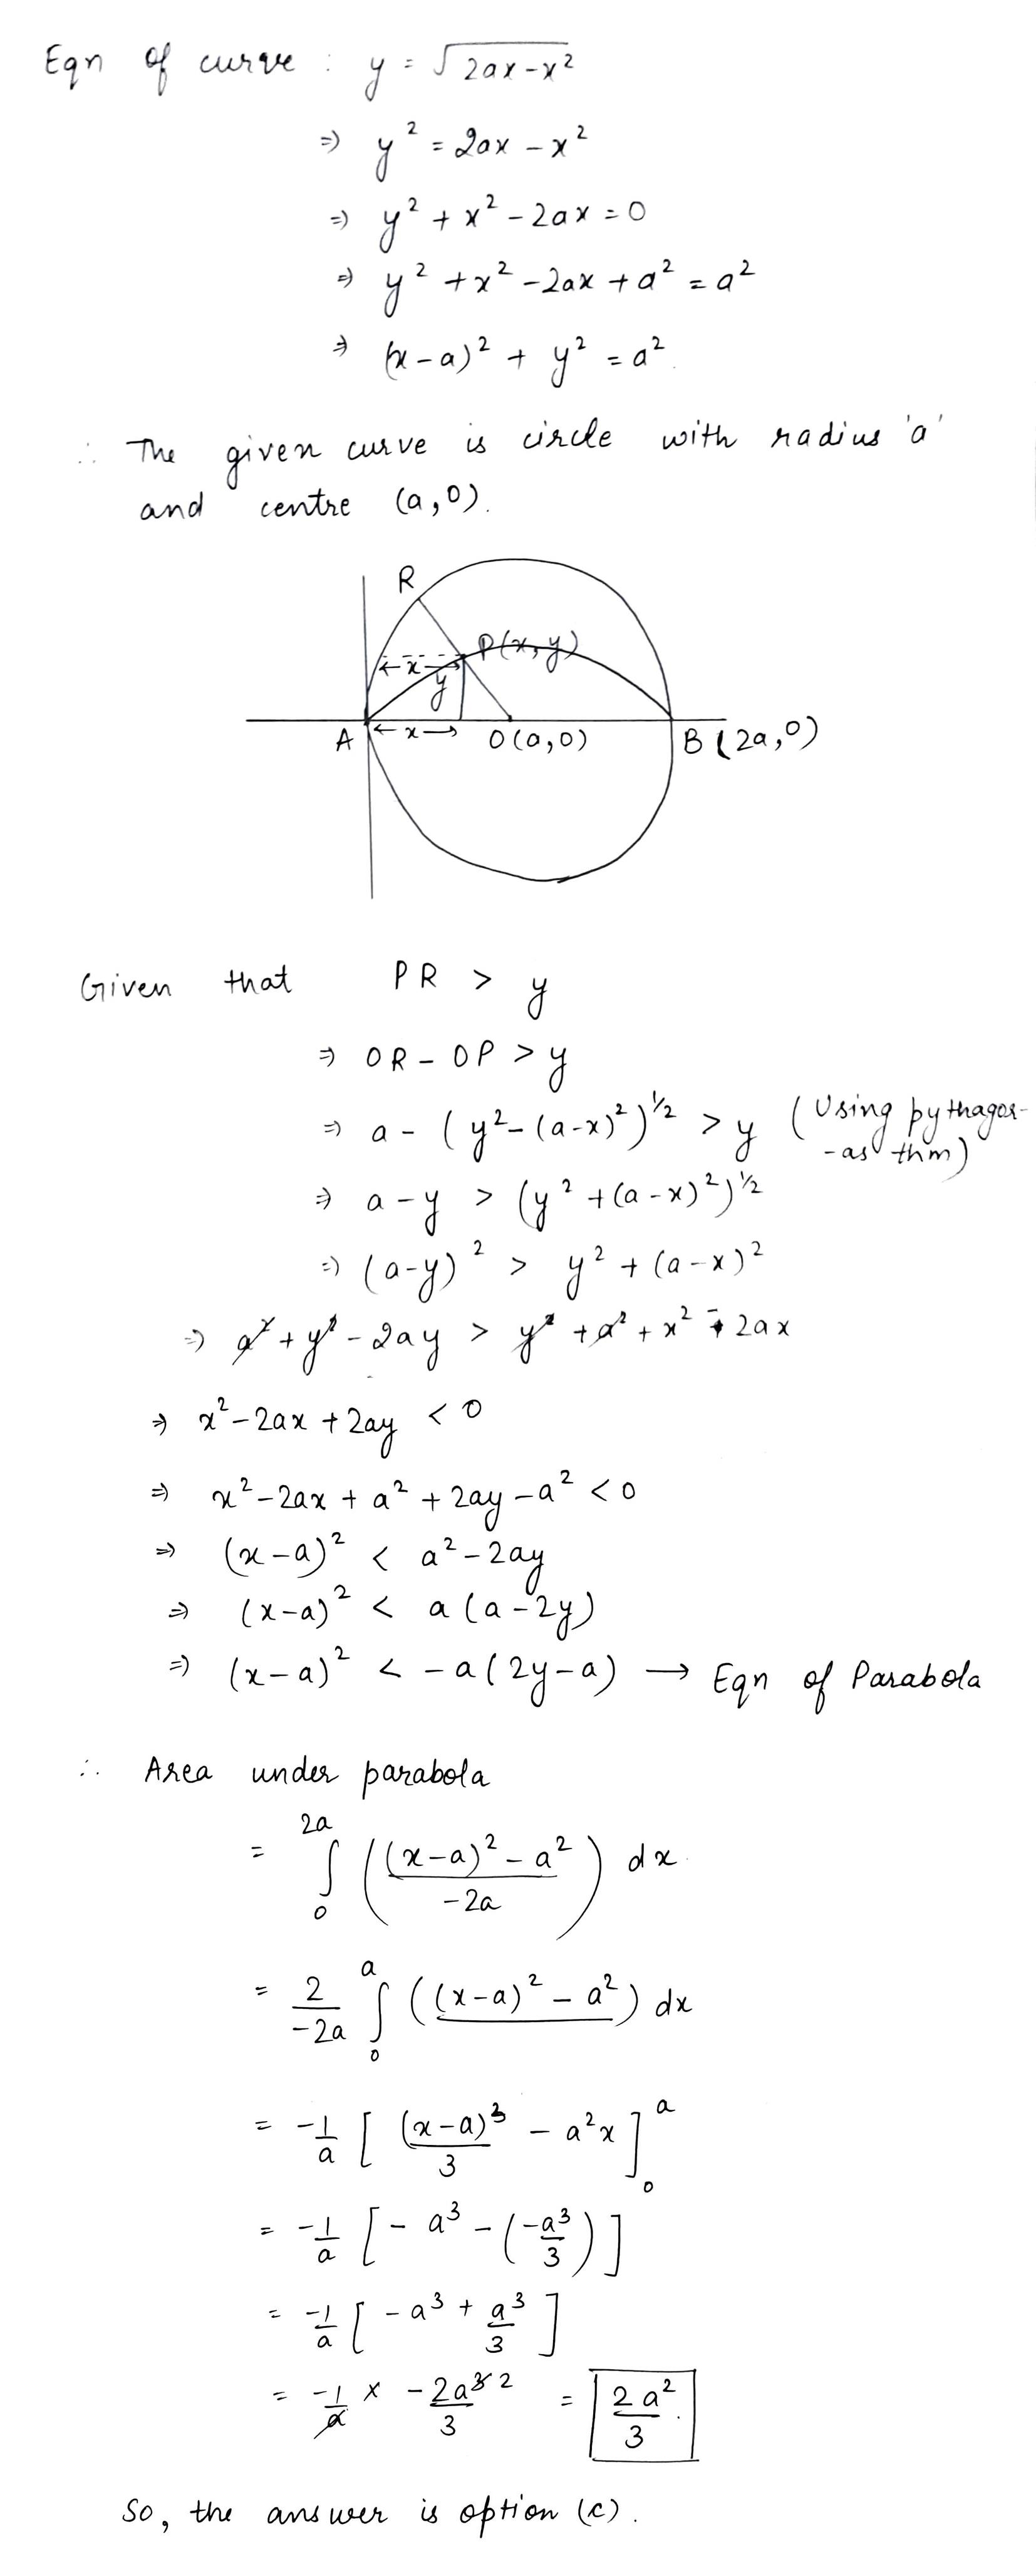 Eqn of curve : y = √2ax-x²
⇒ y² = 2ax - x²
⇒ y² + x² - 2ax = 0
⇒ y² + x² - 2ax + a² = a²
⇒ (x-a)² + y² = a².
∴ The given curve is circle with radius 'a'
and centre (a,0).
R
P(x,y)
←x→
y
A ←x→ O(a,0) B(2a,0)
Given that PR > y
⇒ OR - OP > y
⇒ a - (y²-(a-x)²)^1/2 > y (Using pythagor-
-as thm)
⇒ a-y > (y²+(a-x)²)^1/2
⇒ (a-y)² > y² + (a-x)²
⇒ a² + y² - 2ay > y² + a² + x² - 2ax
⇒ x² - 2ax + 2ay < 0
⇒ x² - 2ax + a² + 2ay - a² < 0
⇒ (x-a)² < a² - 2ay
⇒ (x-a)² < a(a-2y)
⇒ (x-a)² < -a(2y-a) → Eqn of Parabola
∴ Area under parabola
= ∫₀^2a ((x-a)² - a² / -2a) dx.
= 2/-2a ∫₀^a ((x-a)² - a²) dx
= -1/a [(x-a)³/3 - a²x]₀^a
= -1/a [-a³ - (-a³/3)]
= -1/a [-a³ + a³/3]
= -1/a × -2a³ ²/3 = 2a²/3.
So, the answer is option (c).